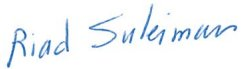 Riad Suleiman